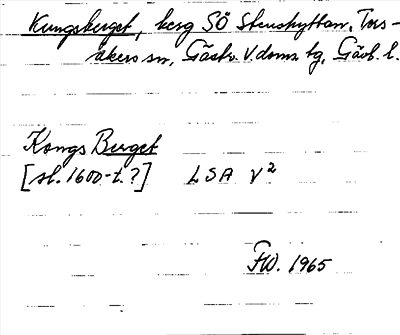 Kungsberget, berg SÖ Stenshyttan, Tors-
åkers sn, Gästr. V. doms. tg, Gävl. l.
Kongs Berget
[sl. 1600-t.?] LSA V²
FW. 1965